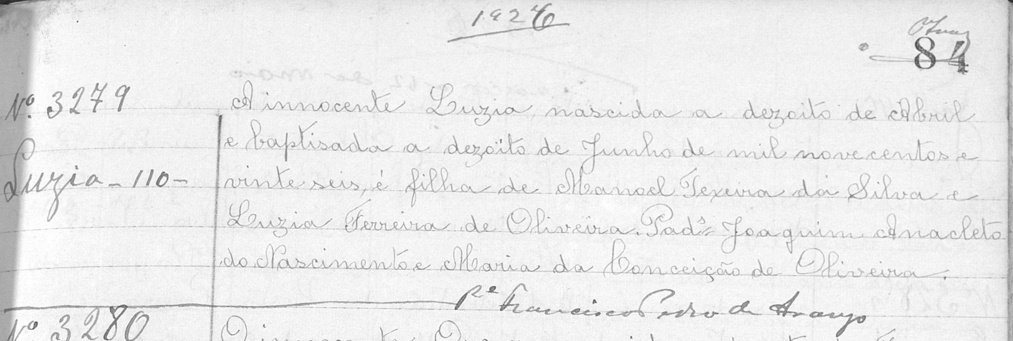 1926
84
Nº 3279
Luzia - 110 -
A innocente Luzia, nascida a dezoito de Abril
e baptisada a dezoito de Junho de mil novecentos e
vinte seis, é filha de Manoel Texeira da Silva e
Luzia Ferreira de Oliveira. Padº Joaquim Anacleto
do Nascimento e Maria da Conceição de Oliveira.
Pe Francisco Pedro de Araujo
Nº 3280